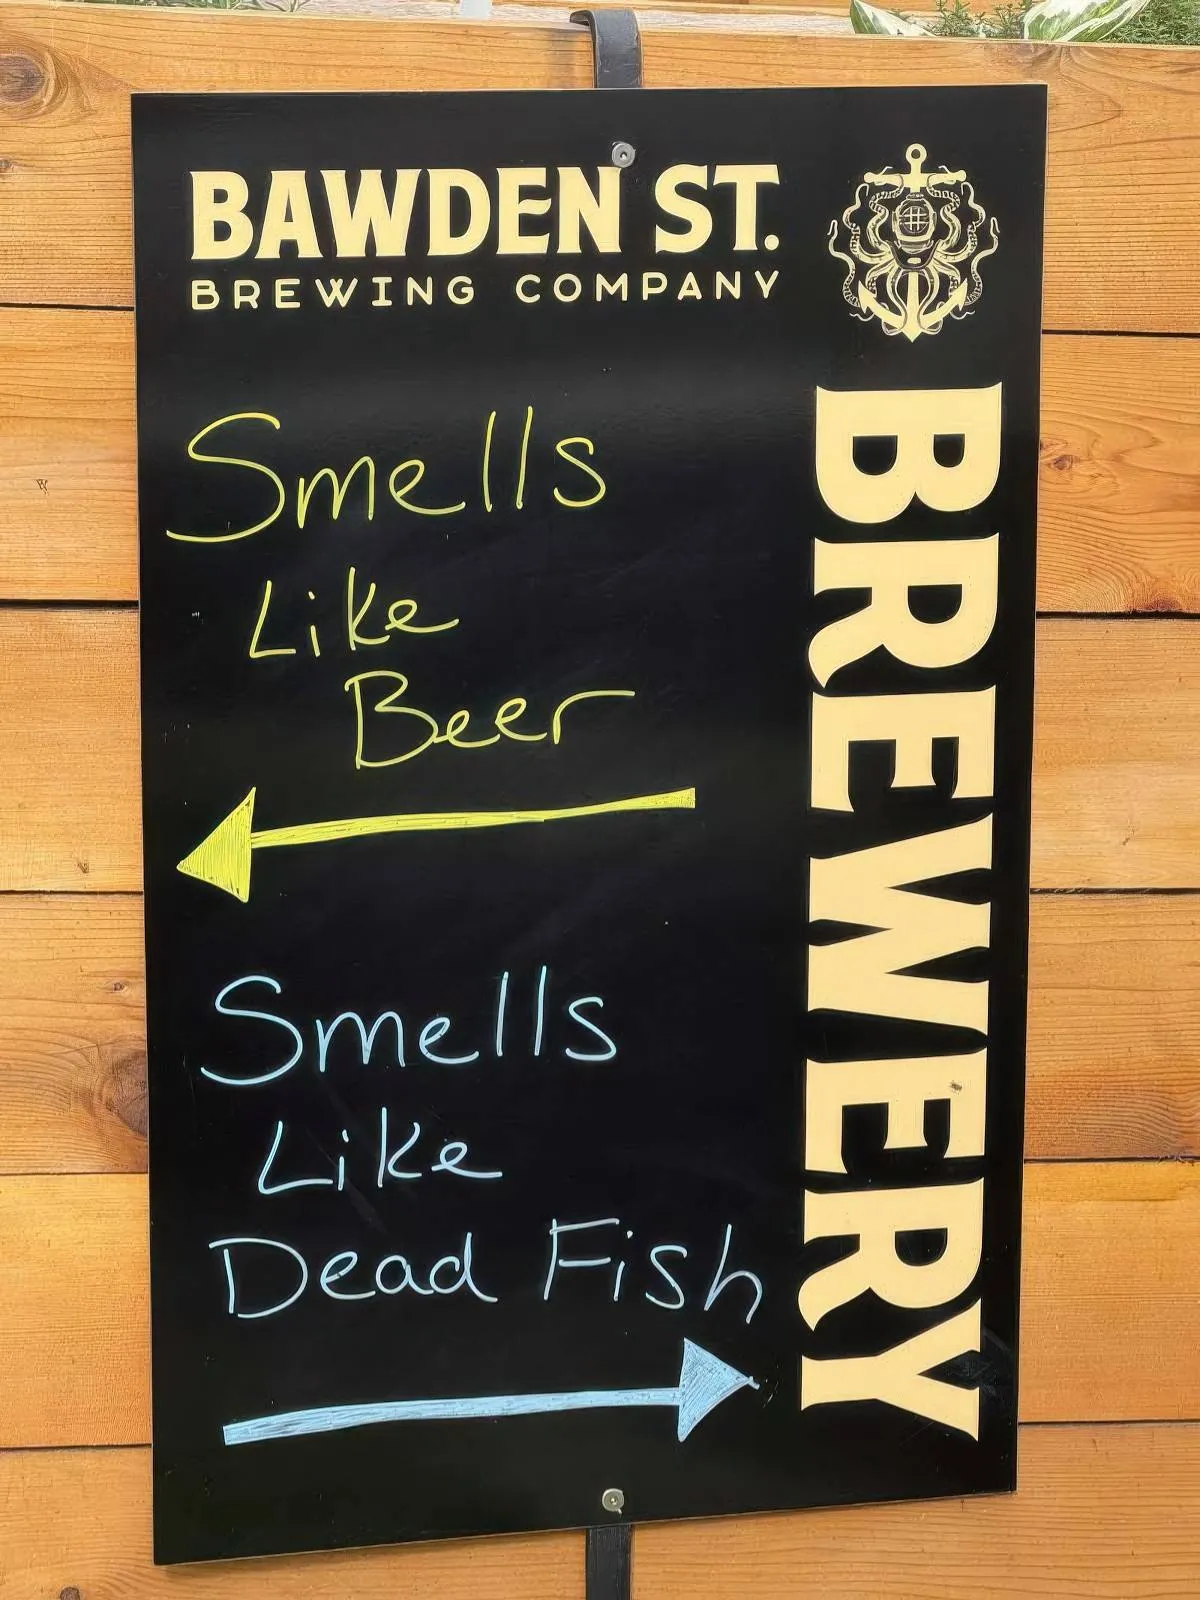 BAWDEN ST.
BREWING COMPANY
BREWERY
Smells
Like
Beer
Smells
Like
Dead Fish